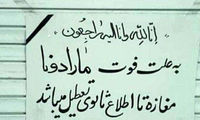 انا لله وانا الیه راجعون
به علت فوت مارادونا
مغازه تا اطلاع ثانوی تعطیل میباشد